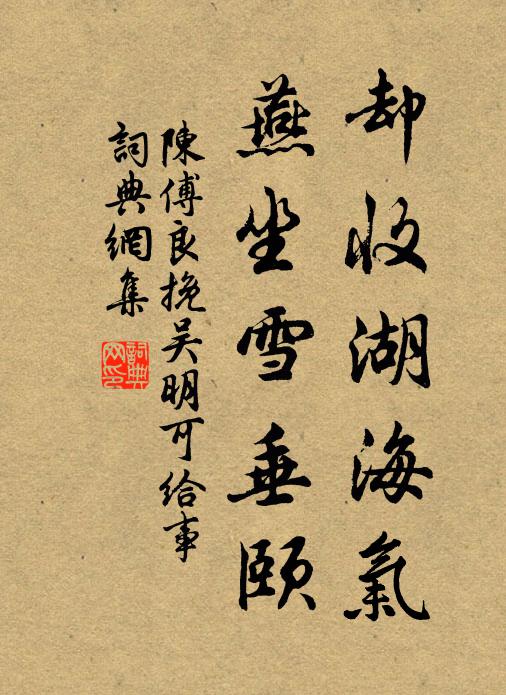 却收湖海氣
燕坐雪垂頤
陳傅良挽吴明可給事
詞典網集
詞典网印